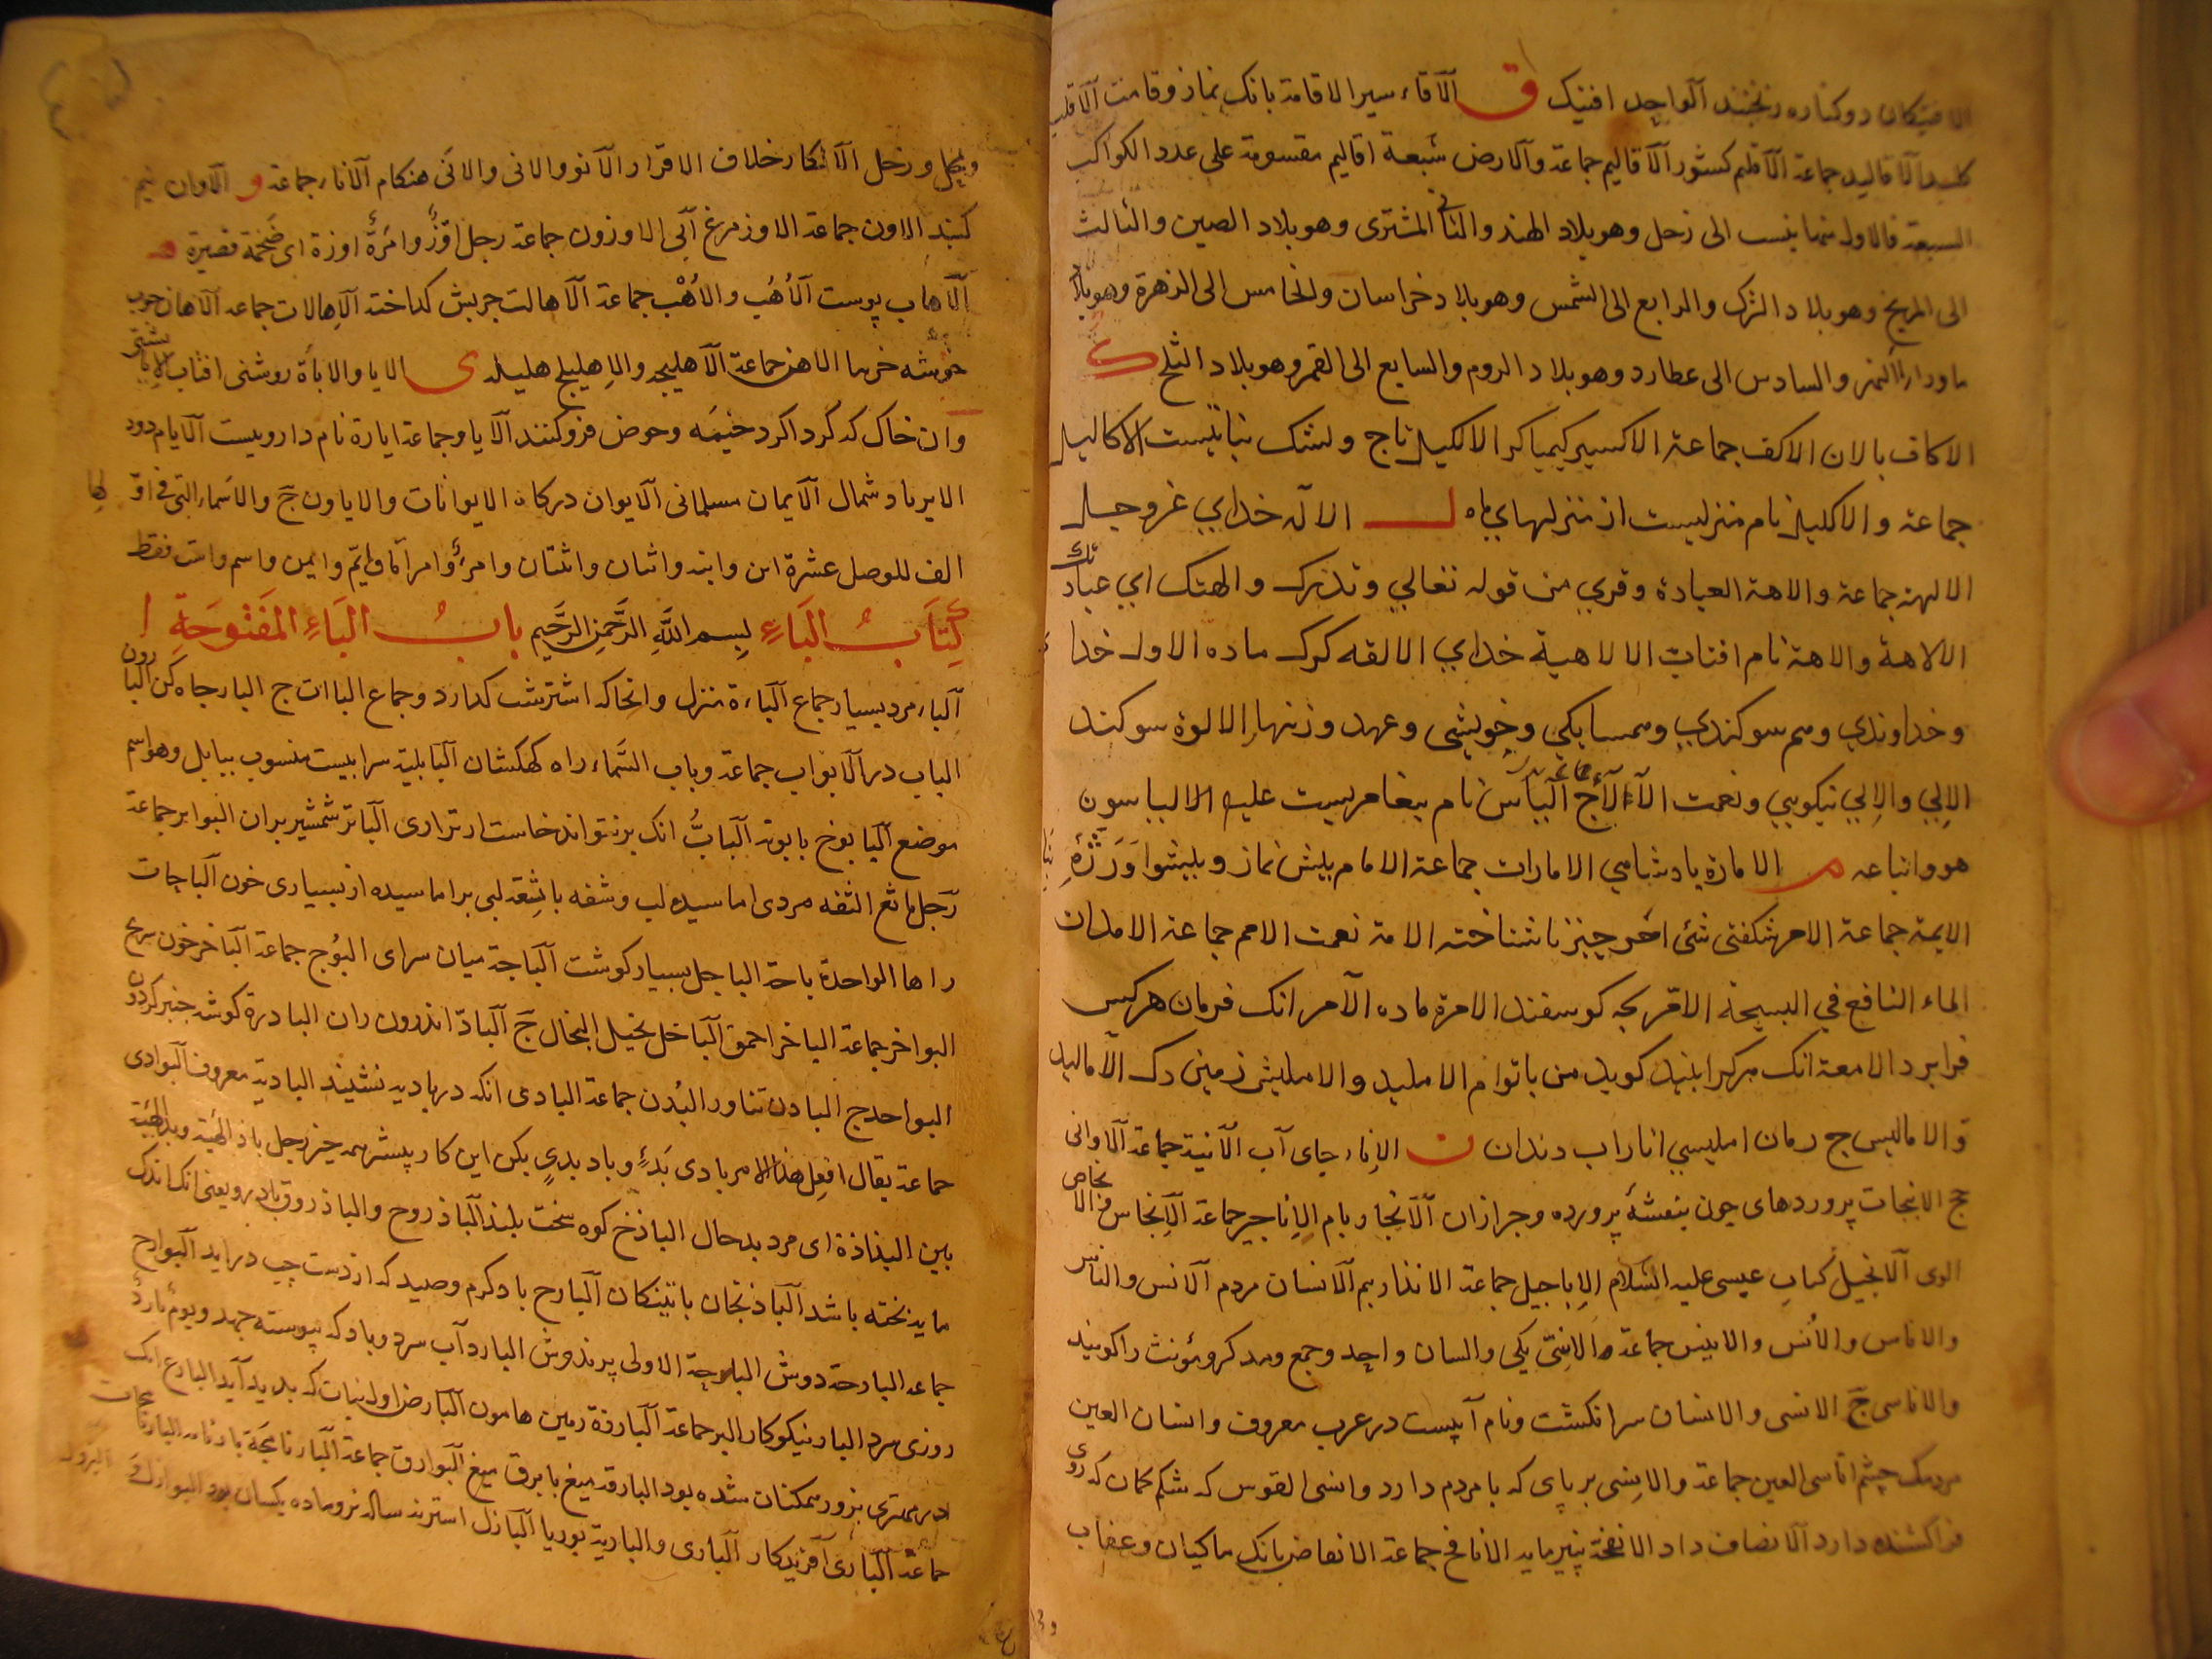 الافنیکان دو کناره رنجنند الواحد افنیک ق الآقاء سیر الاقامة بانک نماز وقامت الاقلید
کلید الآقالید جماعة الآقلیم کشور الآقالیم جماعة والارض سبعة اقالیم مقسومة علی عدد الکواکب
السبعة فالاول منها ینسب الی زحل وهو بلاد الهند والثانی المشتری وهو بلاد الصین والثالث
الی المریخ وهو بلاد الترک والرابع الی الشمس وهو بلاد خراسان والخامس الی الزهرة وهو بلاد
ماوراء النهر والسادس الی عطارد وهو بلاد الروم والسابع الی القمر وهو بلاد الثلج ک
الاکاف بالان الاکف جماعة الاکسیر کیمیا کر الاکلیل تاج ولشک نباتیست الاکالیل
جماعة والاکلیل نام منزلیست از منزلهای ماه ل الاله خدای عز وجل
الالهة جماعة والاهة العبادة وقری من قوله تعالی وتذرک والهتک ای عبادتک
الالاهة والاهة نام افتاب الالاهیة خدای الالقه کرک ماده الاول خدا
وخداوندی وسم سوکندی وهمسایکی وخویشی وعهد وزنهار الالوة سوکند
الالی والالی نیکویی ونعمت الآلاء ج الیاس نام پیغامبریست علیه الالیاسون
هو واتباعه م الامارة پادشاهی الامارات جماعة الامام پیش نماز وپیشوا
الایمة جماعة الامر شکفتی شئ امر چیز ناشناخته الامة نعمت الامم جماعة الامدان
الماء النافع فی السبخة الامر بچه کوسفند الامرة ماده الآمر انک فرمان هر کس
فرا برد الامعة انک هرکرا بیند کوید من باتوام الاملید والاملیس زمین رک الآمالید
والامالیس ج رمان املیسی انار اب دندان ن الاناء جای آب الآنیة جماعة الاوانی
جج الانبجات پروردهای چون بنفشه پرورده وجز ازان الآنجار بام الاناجیر جماعة الآنجاس
الانجیل کتاب عیسی علیه السلام الاناجیل جماعة الانذار بیم الآنسان مردم الآنس والناس
والاناس والانس والانیس جماعة الانسی یکی والسان واحد وجمع ومذکر ومونث را کویند
والاناسی ج الانسی والانسان سر انکشت ونام آبیست در عرب معروف وانسان العین
مردمک چشم اناسی العین جماعة والانسی بر پای که با مردم دارد وانسی القوس که شکم کمان که روی
فراکشنده دارد الانصاف داد الانفحة پنیر مایه الانافح جماعة الانقاض بانک ماکیان وعقاب
الآنکار خلاف الاقرار الآنو والانی والانی هنکام الآناء جماعة و الآوان نیم
کنبد الاون جماعة الاوز مرغ آبی الاوزون جماعة رجل اوز وامرأة اوزة ای ضخمة قصیرة ه
الآهاب پوست الآهب والاهب جماعة الآهالت چربش کداخته الاهالات جماعه الآهان چوب
خوشه خرما الاهن جماعة الآهلیجه والاهلیلج هلیله ی الایا والایاة روشنی افتاب
وان خاک که کرد اکرد خیمه وحوض فرو کنند الآیا وجماعة ایارة نام داروییست الآیام دود
الایر باد شمال الآیمان مسلمانی الآیوان درکاه الایوانات والایاون ج والاسماء التی فی اولها
الف للوصل عشرة ابن وابنة واثنان واثنتان وامرؤ وامراة وایم وایمن واسم واست فقط
کتاب الباء بسم الله الرحمن الرحیم باب الباء المفتوحة ا
الباء مرد بسیار جماع الباءة منزل وانجا که اشتر شب کدارد وجماع الباات ج البار چاه کن البارون
الباب در الآبواب جماعة وباب السماء راه کهکشان البابلیة سرابیست منسوب ببابل وهو اسم
موضع البابوخ بابونه الباب انک برنتواند خاست از تراری الباتر شمشیر بران البواتر جماعة
رجل باثع الشفه مردی اماسیده لب وشفه باثعة لبی بر اماسیده از بسیاری خون الباجات
راها الواحدة باحة الباجل بسیار کوشت الباحة میان سرای البوح جماعة الباخر خون سرخ
البواخر جماعة الباخر احمق الباخل بخیل البخال ج الباد اندرون ران البادرة کوشه
البواحدج البادن تناور البدن جماعة البادی انکه دربادیه نشیند البادیة معروف البوادی
جماعة یقال افعل هذا الامر بادی بدء وباد بدی بکن این کار پیشتر همه چیز رجل باذ الهیة
بین البذاذة ای مرد بدحال الباذخ کوه سخت بلند الباذروج والباذ روق
ماید نخته باشد الباذنجان باتینکان البارح باد کرم وصید که از دست چپ دراید البوارح
جماعه البارحة دوش البارحة الاولی پرندوش البارد آب سرد وباد که پیوسته جهد ویوم بارد
روزی سرد البار نیکوکار البر جماعة البارقة زمین هامون البارض اول نبات که پدید آید البارع انک
در همتری بزور همکنان شده بود البارقة میغ با برق میغ البوارق جماعة البارنامجة بارنامه
جماعة الباری آفریدکار الباری والباریة بوریا البازل اشتر نه ساله نر وماده یکسان بود البوازل